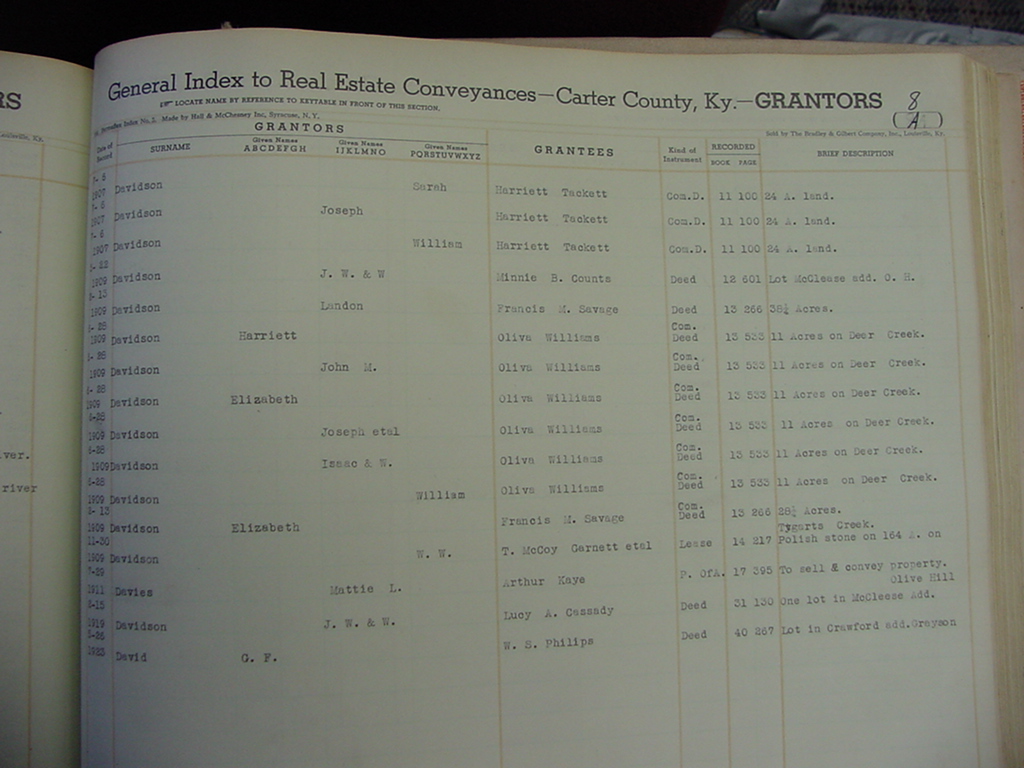 General Index to Real Estate Conveyances—Carter County, Ky.—GRANTORS 8
LOCATE NAME BY REFERENCE TO KEYTABLE IN FRONT OF THIS SECTION. A
Index No. 2. Made by Hall & McChesney Inc, Syracuse, N. Y. Sold by The Bradley & Gilbert Company, Inc., Louisville, Ky.
GRANTORS
Date of Record SURNAME Given Names ABCDEFGH Given Names IJKLMNO Given Names PQRSTUVWXYZ GRANTEES Kind of Instrument RECORDED BOOK PAGE BRIEF DESCRIPTION
1907 Davidson Sarah Harriett Tackett Com.D. 11 100 24 A. land.
1907 Davidson Joseph Harriett Tackett Com.D. 11 100 24 A. land.
1907 Davidson William Harriett Tackett Com.D. 11 100 24 A. land.
1909 Davidson J. W. & W Minnie B. Counts Deed 12 601 Lot McClease add. O. H.
1909 Davidson Landon Francis M. Savage Deed 13 266 Acres.
1909 Davidson Harriett Oliva Williams Com. Deed 13 533 11 Acres on Deer Creek.
1909 Davidson John M. Oliva Williams Com. Deed 13 533 11 Acres on Deer Creek.
1909 Davidson Elizabeth Oliva Williams Com. Deed 13 533 11 Acres on Deer Creek.
1909 Davidson Joseph etal Oliva Williams Com. Deed 13 533 11 Acres on Deer Creek.
1909 Davidson Isaac & W. Oliva Williams Com. Deed 13 533 11 Acres on Deer Creek.
1909 Davidson William Oliva Williams Com. Deed 13 533 11 Acres on Deer Creek.
1909 Davidson Elizabeth Francis M. Savage Com. Deed 13 266 Acres.
Tygarts Creek.
11-30
1909 Davidson W. W. T. McCoy Garnett etal Lease 14 217 Polish stone on 164 A. on
7-29
1911 Davies Mattie L. Arthur Kaye P. OfA. 17 395 To sell & convey property.
Olive Hill
1919 Davidson J. W. & W. Lucy A. Cassady Deed 31 130 One lot in McCleese Add.
1923 David G. F. W. S. Philips Deed 40 267 Lot in Crawford add.Grayson
RS
ver.
river